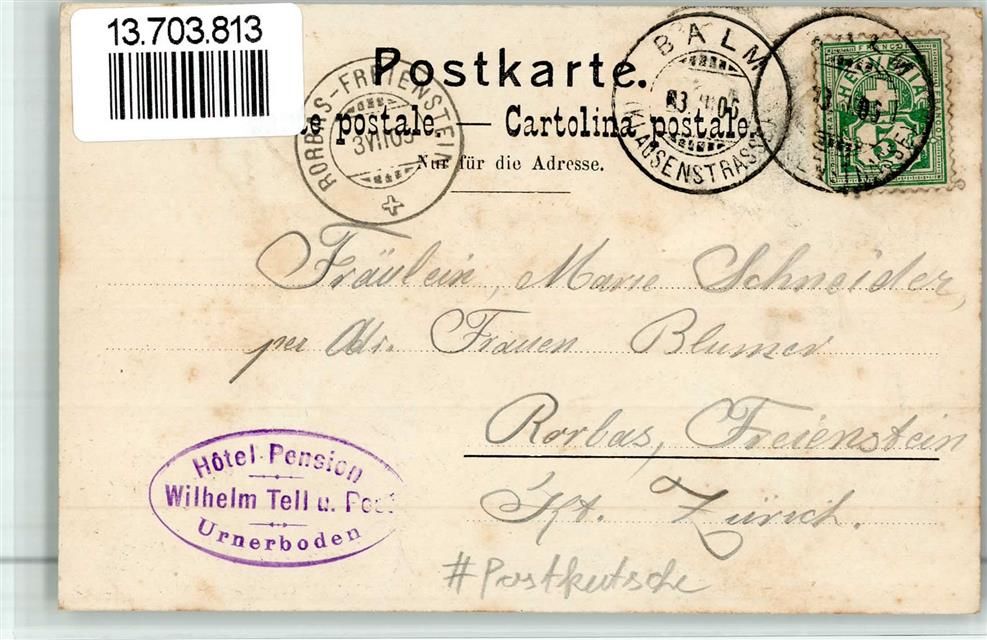 13.703.813
Postkarte.
te postale — Cartolina postale.
Nur für die Adresse.
RORBAS-FREIENSTEIN
3 VII 06
BALM
3 VII 06
(KLAUSENSTRASSE)
FRANCO
HELVETIA
Fräulein, Marie Schneider,
per Adr. Frauen Blumer
Rorbas, Freienstein
Kt. Zürich.
Hôtel Pension
Wilhelm Tell u. Post
Urnerboden
#Postkutsche